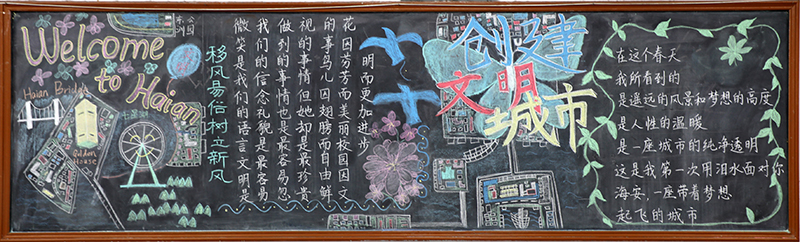 Welcome
to Haian
Haian Bridge
Golden
House
东洲
公园
七星湖
移风易俗树立新风
花因芬芳而美丽校园因文
明而更加进步
的事鸟儿因翅膀而自由鲜
视的事情但她却是最珍贵
做到的事情也是最容易忽
我们的信念礼貌是最容易
微笑是我们的语言文明是
创建
文明
城市
在这个春天
我所看到的
是遥远的风景和梦想的高度
是人性的温暖
是一座城市的纯净透明
这是我第一次用泪水面对你
海安,一座带着梦想
起飞的城市